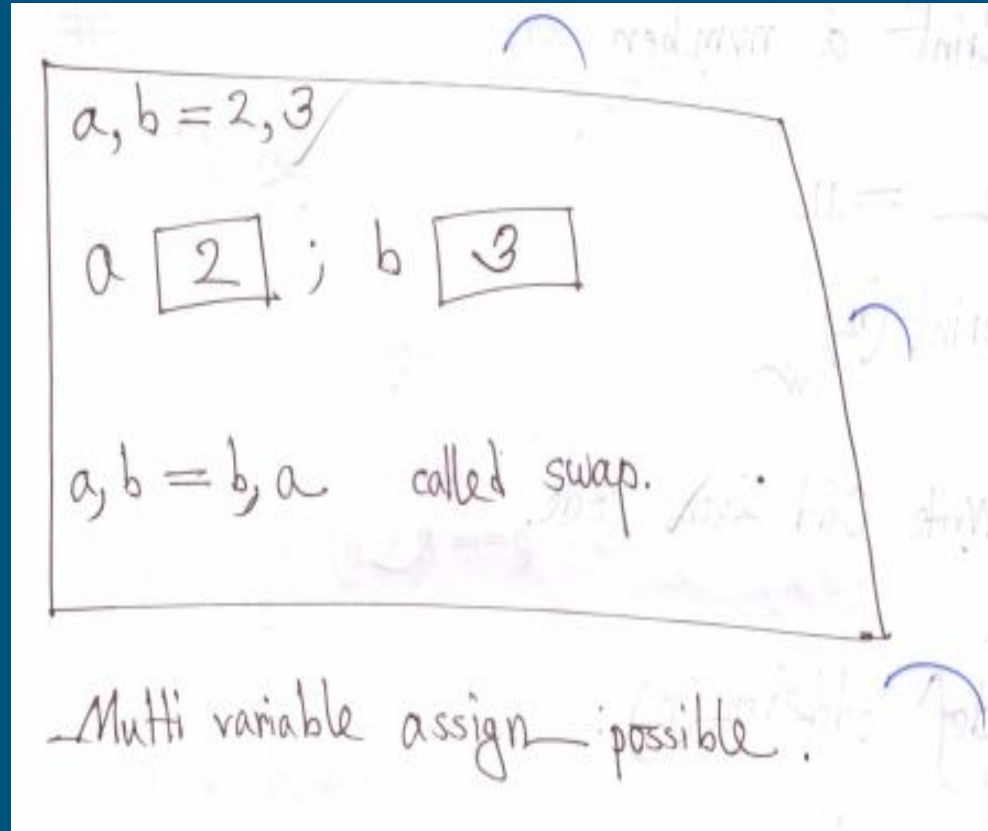 a, b = 2, 3
a 2 ; b 3
a, b = b, a called swap.
Multi variable assign possible.